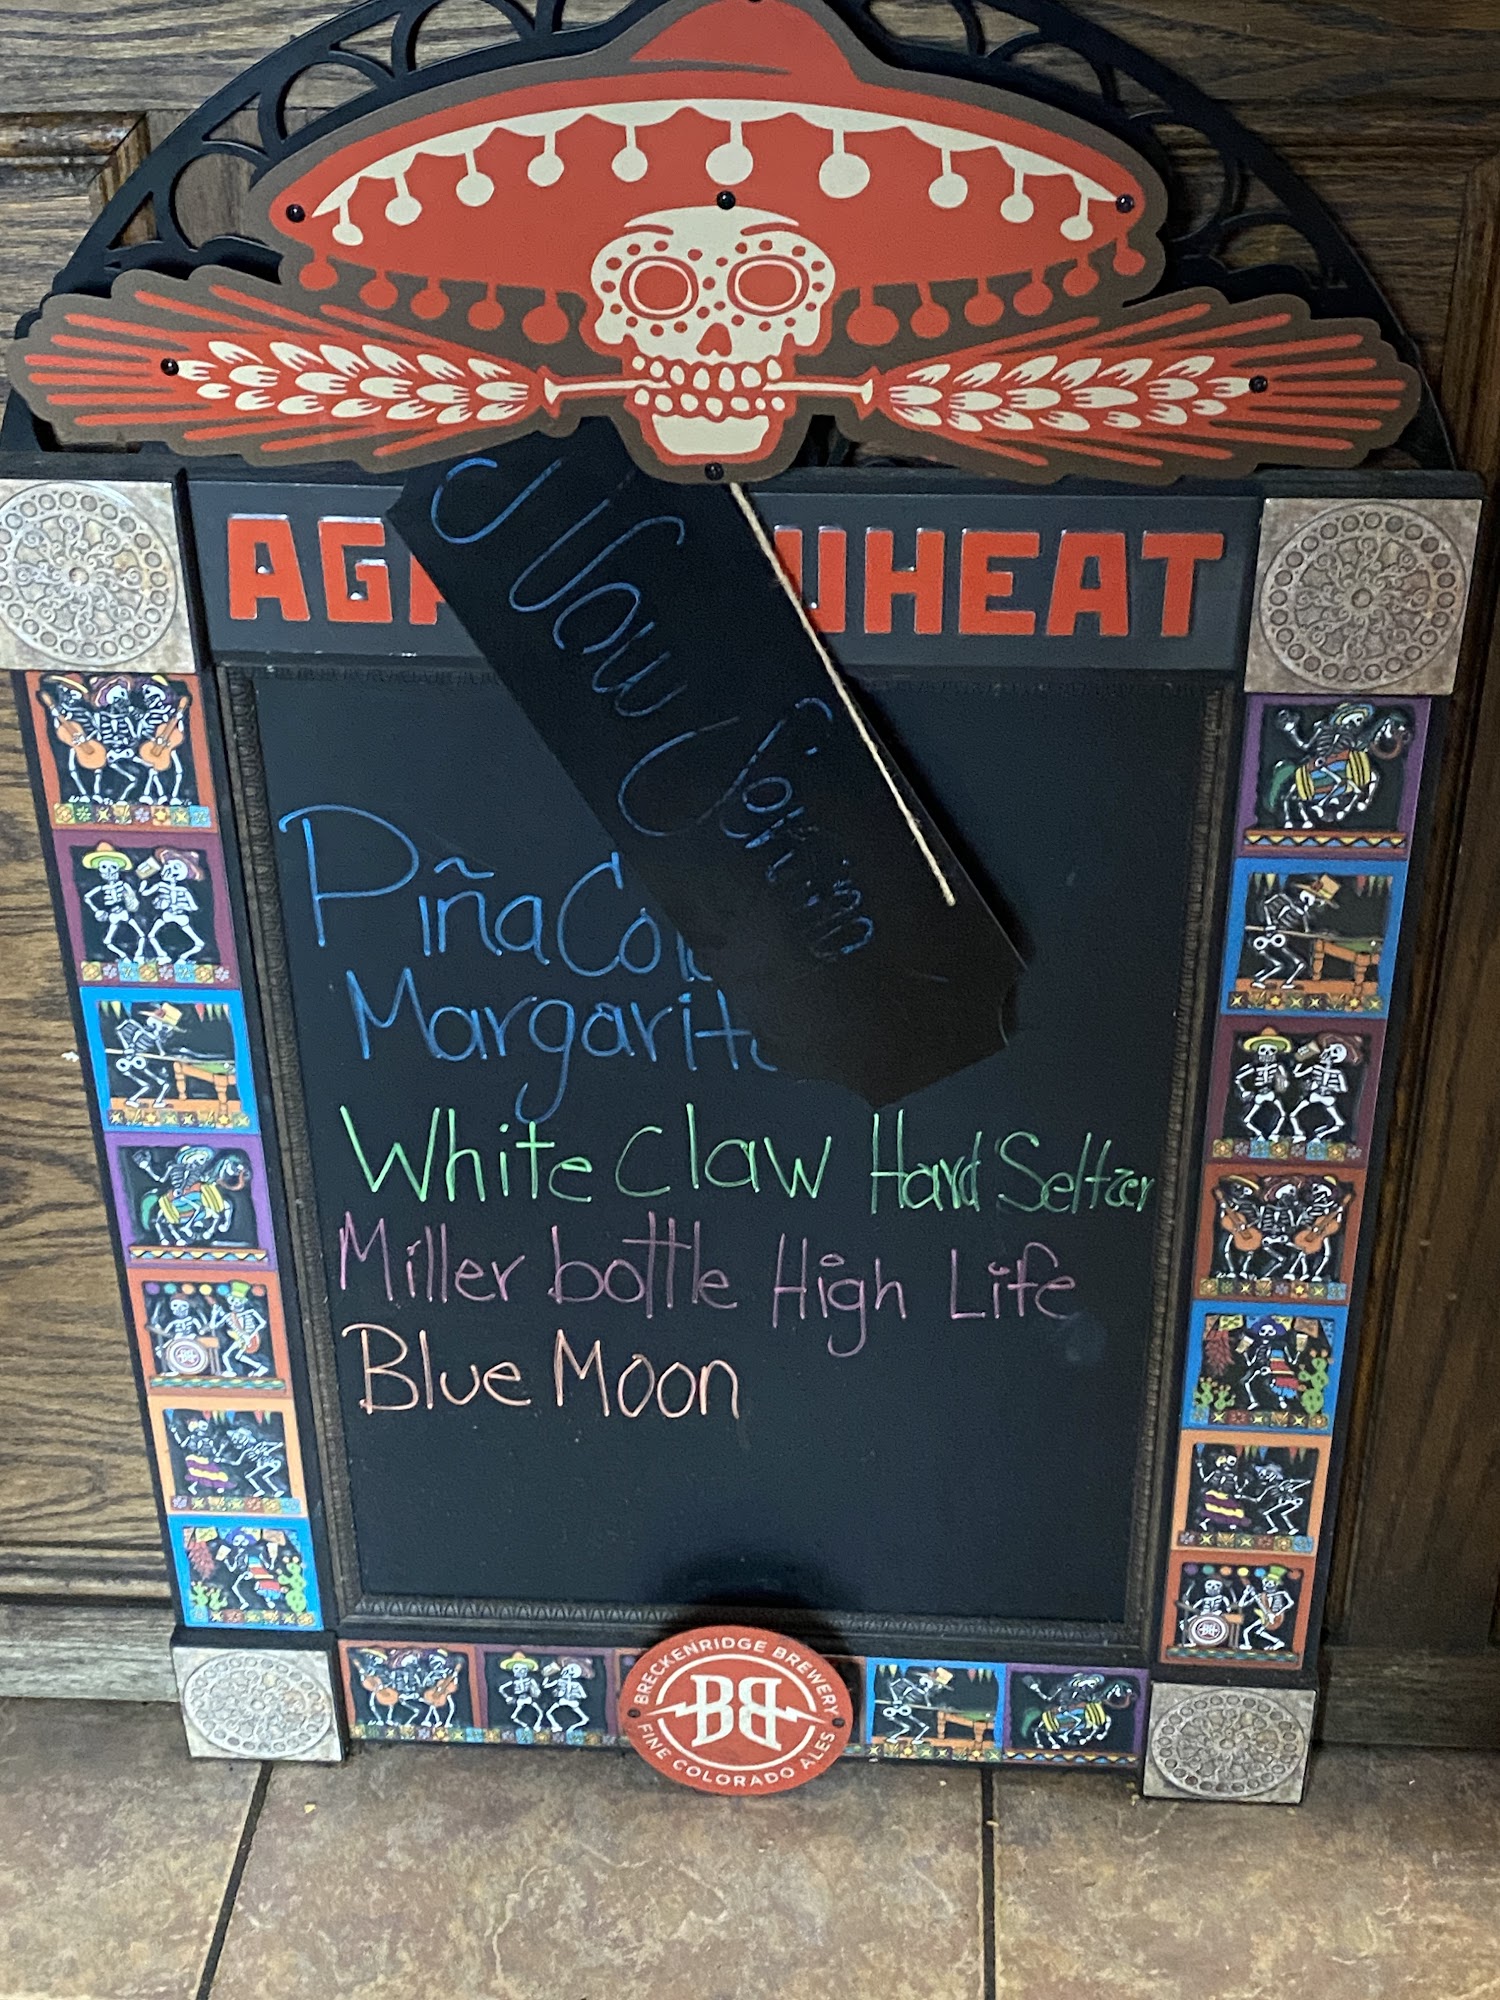 AGA WHEAT
Now Serving
Piña Col
Margarita
White Claw Hard Seltzer
Miller bottle High Life
Blue Moon
BRECKENRIDGE BREWERY
BB
FINE COLORADO ALES